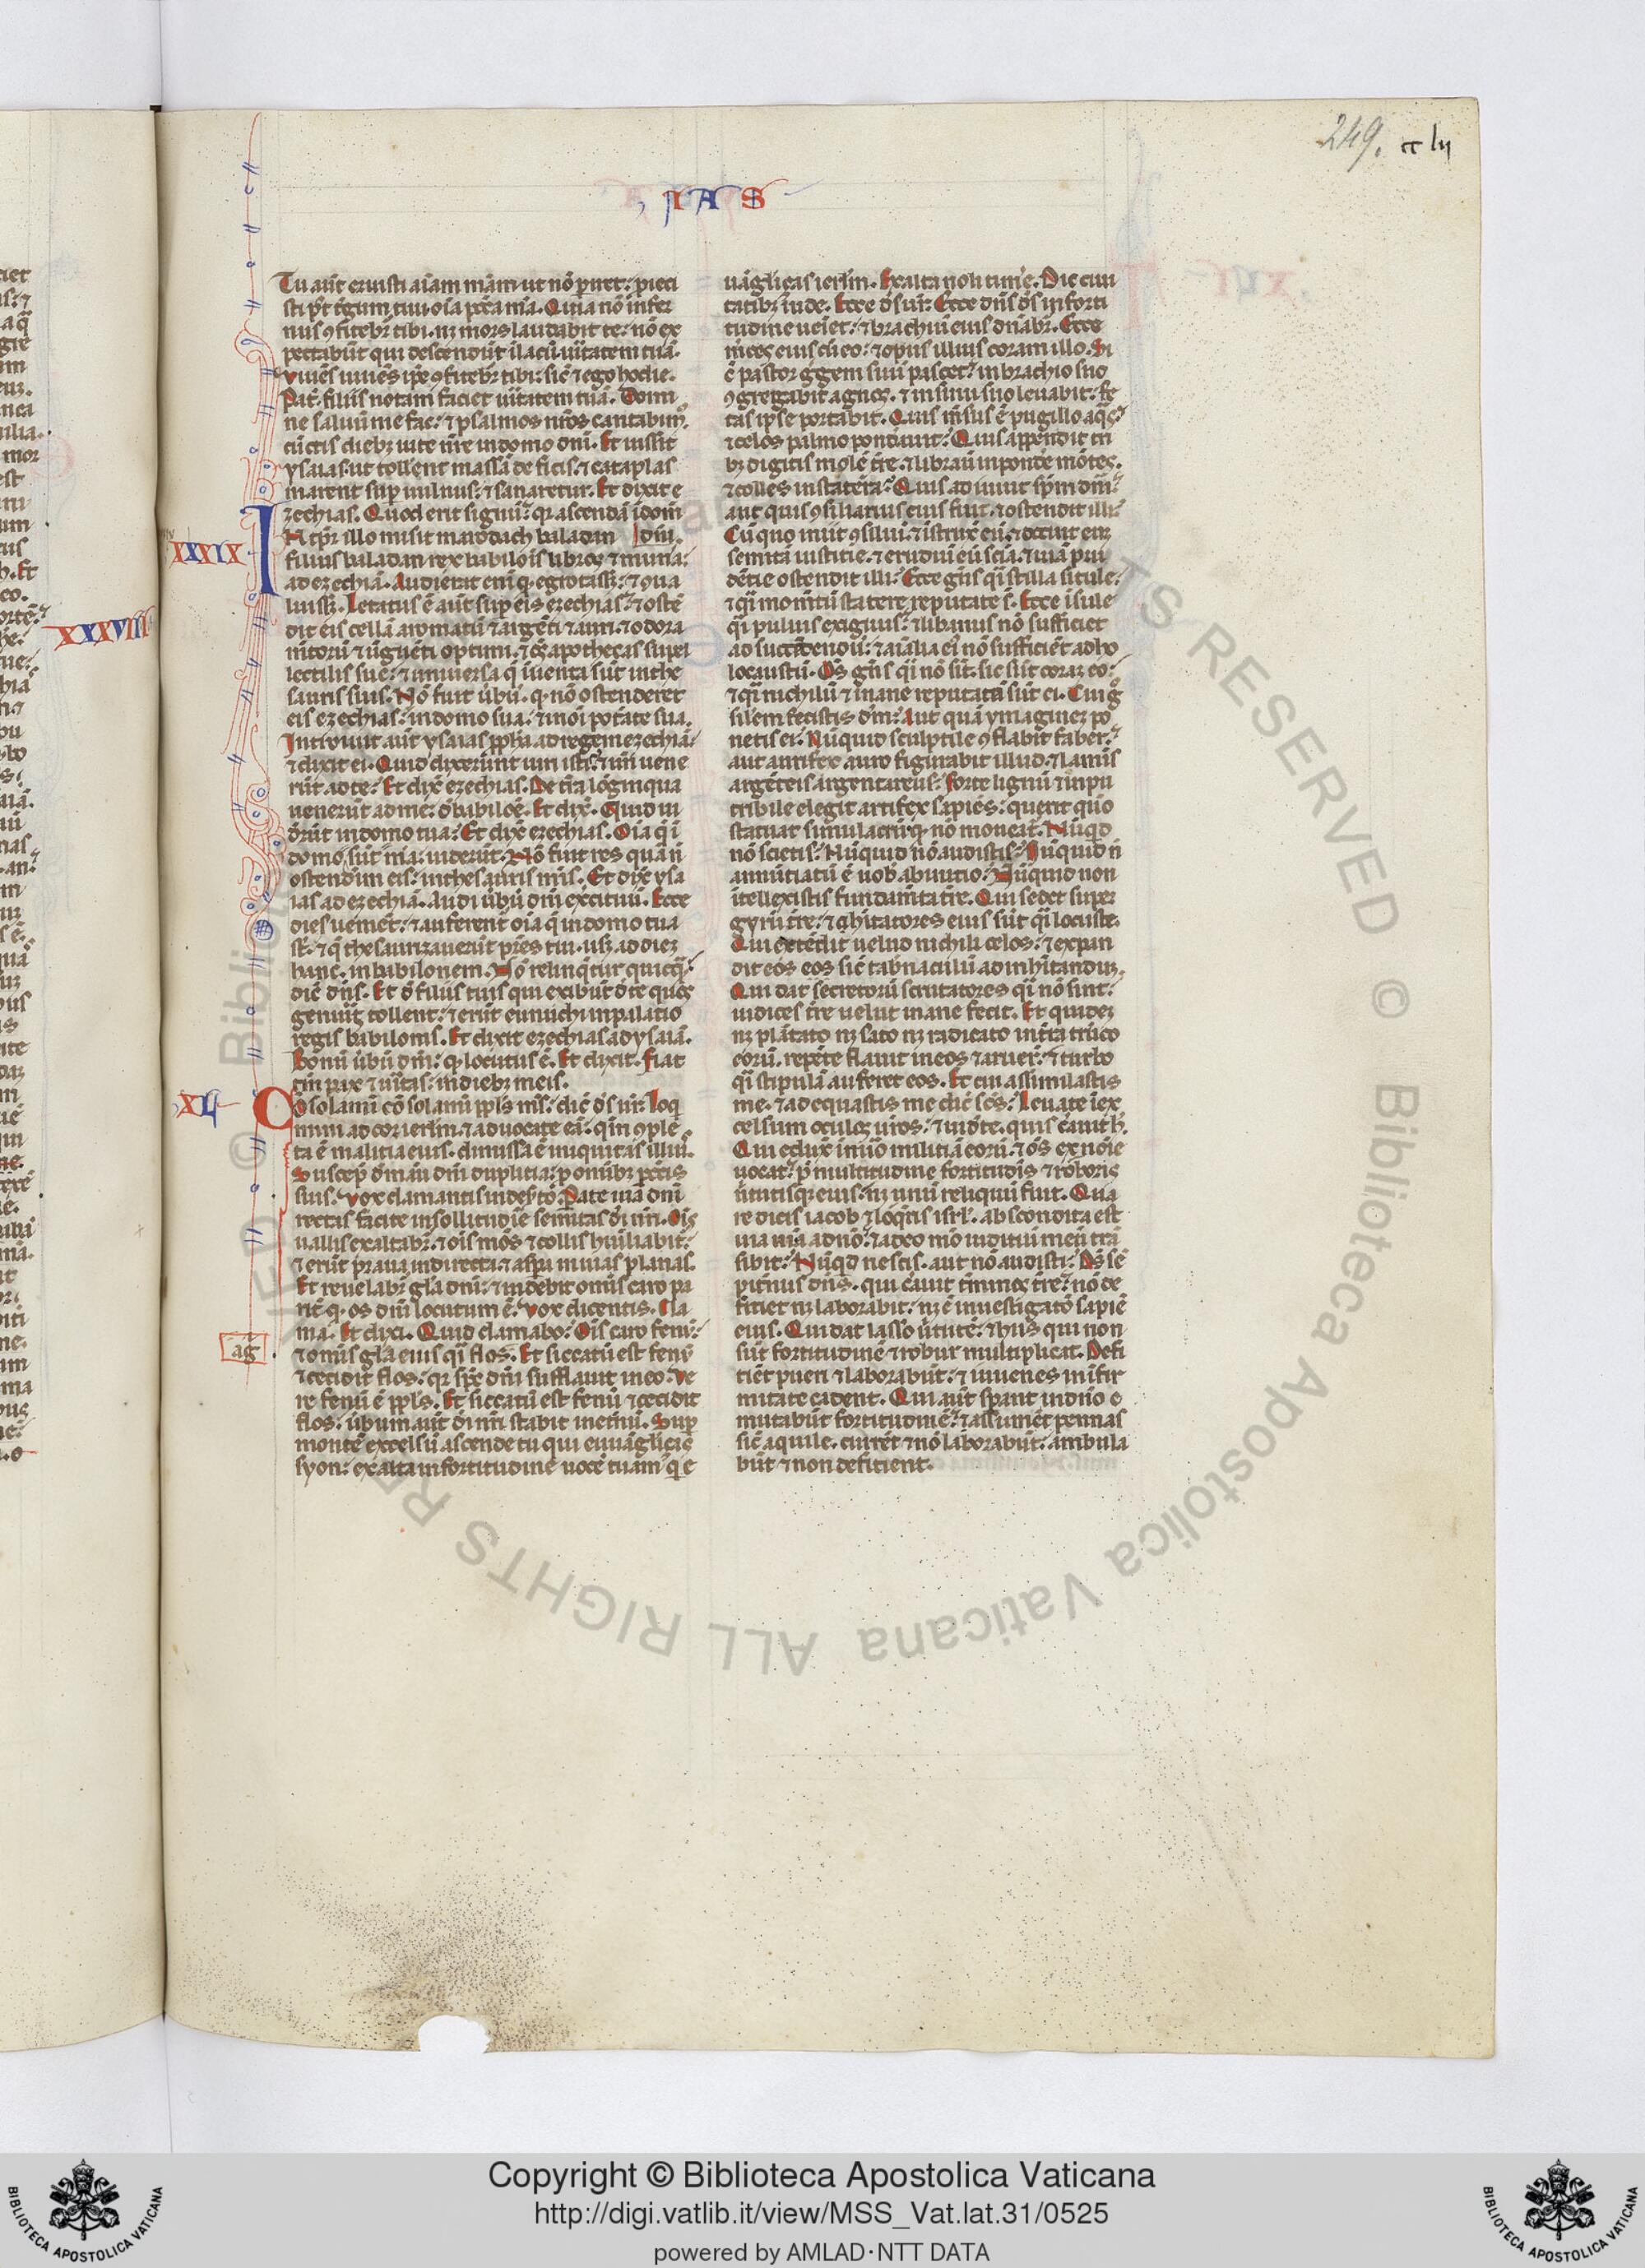 249. cclij
IAS
Tu aut̄ eruisti aīam mām ut nō ꝑiret: ꝓieci
sti pꝰt tꝰgum tuū oīa pctā mīa. Quia nō infer
nus ꝯfitebr̄ tibi. nꝫ mors laudabit te: nō ex
pectabūt qui descendūt ī lacū ūitatem tuā.
Viuēs uiuēs ip̄e ꝯfitebr̄ tibi: sic̄ ⁊ ego hodie.
Pat̄ filiis notam faciet ūitatem tuā. Domi
ne saluū me fac: ⁊ psalmos nr̄os cantabimꝰ
cūctis diebꝫ uite nr̄e in domo dn̄i. Et iussit
ysaias: ut tollent massā de ficis: ⁊ cataplas
marent suꝑ uulnus: ⁊ sanaretur. Et dixit e
zechias. Quod erit signū: qꝛ ascendā ī dom̄
dn̄i.
XXXIX
IN tp̄r illo misit marodach baladan
filius baladan rex babilōis libros ⁊ mun̄a:
ad ezechiā. Audierat eni ꝙ egrotassꝫ: ⁊ ꝯua
luissꝫ. Letatus ē aut̄ suꝑ eis ezechias: ⁊ ostē
dit eis cellā aromatū ⁊ argēti ⁊ auri ⁊ odora
mtorū ⁊ ūguēti optimi. ⁊ oēs apothecas supel
lectilis sue: ⁊ uniuersa q̄ īuenta sūt in the
sauris suis. Nō fuit ūbū ꝙ nō ostenderet
eis ezechias: in domo sua: ⁊ in oī ptāte sua.
Introiuit aut̄ ysaias pp̄ha ad regem ezechiā:
⁊ dixit ei. Quid dixerūt uiri isti: ⁊ un̄ uene
rūt ad te: Et dix̄ ezechias. De tr̄a lōginqua
uenerūt ad me: d̄ babilōe. Et dix̄. Quid ui
derūt in domo tua: Et dix̄ ezechias. Oīa q̄ ī
domo sūt mīa: uiderūt. Nō fuit res quā n̄
ostendim eis: in thesauris mīs. Et dix̄ ysa
ias ad ezechiā. Audi ūbū dn̄i exercituū. Ecce
dies uenient: ⁊ auferent̄ oīa q̄ in domo tua
sꝭ: ⁊ q̄ thesaurizauerūt pr̄es tui. usqꝫ ad diez
hanc. in babilonem. Nō relinq̄tur quicꝙ̄:
dic̄ dn̄s. Et d̄ filiis tuis qui exibūt d̄ te quos
genuit̄ tollent: ⁊ erūt eunuchi in palatio
regis babilonis. Et dixit ezechias ad ysaiā.
Bonū ūbū dn̄i: ꝙ locutus ē. Et dixit. fiat
tm̄ pax ⁊ ūitas: in diebꝫ meis.
XL
Cōsolamī cōsolamī pp̄ls ms̄: dic̄ ds̄ ur̄: Loqi
mini ad cor ierlm̄. ⁊ aduocate eā: qm̄ ꝯple
ta ē malitia eius. dimissa ē iniquitas illiu.
Suscep̄ d̄ mānu dn̄i duplicia: ꝓ omībꝫ pctīs
suis. Vox clamantis in dēsto. Pate uiā dn̄i
rectas facite in sollitudīe semitas dī nr̄i. Oīs
uallis exaltabr̄: ⁊ oīs mōs ⁊ collis hūiliabit̄:
⁊ erūt praua in directa: ⁊ asp̄a in uias planas.
Et reuelabr̄ gl̄a dn̄i: ⁊ uidebit omīs caro pa
rit̄ ꝙ os dn̄i locutum ē. Vox dicentis. Cla
ma. Et dixi. Quid clamabo: Oīs caro fenū:
ag̃
⁊ omīs gl̄a eius q̄i flos. Et siccatū est fenū
⁊ cecidit flos: qꝛ sp̄c dn̄i sufflauit in eo. Ve
re fenū ē pp̄ls. Et siccatū est fenū ⁊ cecidit
flos: ūbum aut̄ dī nr̄i stabit in etn̄ū. Suꝑ
montē excelsū ascende tu qui euuāglicꝭ
syon: exalta in fortitudine uocē tuam: q̄ e
uāglicas ierlm̄. Exalta noli tim̄e. Dic ciui
tatibꝫ iude. Ecce ds̄ ur̄: Ecce dn̄s ds̄ in forti
tudine ueiet: ⁊ brachiū eius dn̄abr̄. Ecce
m̄ces eius cū eo: ⁊ opus illius coram illo. Si
c̄ pastor ḡgem suū pascet: in brachio suo
ꝯgregabit agnos. ⁊ in sinu suo leuabit: fe
tas ip̄se portabit. Quis m̄sus ē pugillo aq̄s:
⁊ celos palmo pondauit: Quis appendit tri
bꝫ digitis molē tr̄e. ⁊ librauit in ponde mōtes.
⁊ colles in statera: Quis adiuuit sp̄m dn̄i:
aut quis ꝯsiliarius eius fuit. ⁊ ostendit illi:
Cū quo iniit ꝯsiliū. ⁊ istrux̄ eū. ⁊ docuit euꝫ
semitā iustitie. ⁊ erudiuit eū sciā. ⁊ uiā pru
dētie ostendit illi: Ecce gn̄s q̄i stilla situle:
⁊ q̄i momtū statere reputate s̄. Ecce īsule
q̄i puluis exiguus: ⁊ libanus nō sufficiet
ad succendendū: ⁊ aīalia ei nō sufficiēt ad ho
locaustū. Om̄s gn̄s q̄i nō sīt: sic sūt coram eo:
⁊ q̄i nichilū ⁊ inane reputata sūt ei. Cui ḡ
silem fecistis dm̄: Aut quā ymaginez po
netis ei: Nūquid sculptile ꝯflabit faber:
aut aurifex auro figurabit illud. ⁊ lamis
argēteis argentareus: forte lignū ⁊ inpu
tribile elegit artifex sapiēs: querit quō
statuat simulacrū ꝙ nō moueat. Nūqd
nō scietis: Nūquid nō audistis: Nūquid n̄
annūtiatū ē uobꝭ ab initio: Nūquid non
itellexistis fundamta tr̄e: Qui sedet super
gyrū tr̄e: ⁊ qͥ hitatores eius sūt q̄i locuste.
Qui extēdit uelud nichilū celos: ⁊ expan
dit eos eos sic̄ tabnaculū ad inhitanduꝫ.
Qui dat secretorū scrutatores q̄i nō sint:
iudices tr̄e uelut inane fecit. Et quidez
nꝫ plātato nꝫ sato nꝫ radicato in tr̄a trūco
eorū. repēte flauit in eos ⁊ aruer̄: ⁊ turbo
q̄i stipulā auferet eos. Et cui assimilastis
me. ⁊ adequastis me dic̄ scs̄: Leuate ī ex
celsum oculos uros: ⁊ uidēte. quis c̄auit h̄.
Qui educ̄ in nūo militiā eorū: ⁊ om̄s ex nōie
uocat: p̄ multitudine fortitudis ⁊ roboris
ūtutisqꝫ eius: nꝫ unū reliquū fuit. Qua
re dicis iacob ⁊ loq̄ris isrl̄. abscondita est
uia mīa a dn̄o: ⁊ a deo mō iuditiū meū trā
sibit: Nūqd nescis. aut nō audisti: Ds̄ sē
pitnus dn̄s. qui c̄auit tminos tr̄e: nō de
ficiet nꝫ laborabit: nꝫ ē inuestigatō sapiē
eius. Qui dat lasso ūtutē: ⁊ hiis qui non
sūt fortitudinē ⁊ robur multiplicat. Defi
ciēt pueri ⁊ laborabūt: ⁊ iuuenes in ifir
mitate cadent. Qui aut̄ sꝑant in dn̄o o
mutabūt fortitudinē: ⁊ assumēt pennas
sic̄ aquile. curēt ⁊ nō laborabūt: ambula
būt ⁊ non deficient.
XXXVIII
© Biblioteca Apostolica Vaticana ALL RIGHTS RESERVED
Copyright © Biblioteca Apostolica Vaticana
http://digi.vatlib.it/view/MSS_Vat.lat.31/0525
powered by AMLAD·NTT DATA
BIBLIOTECA APOSTOLICA VATICANA
BIBLIOTECA APOSTOLICA VATICANA